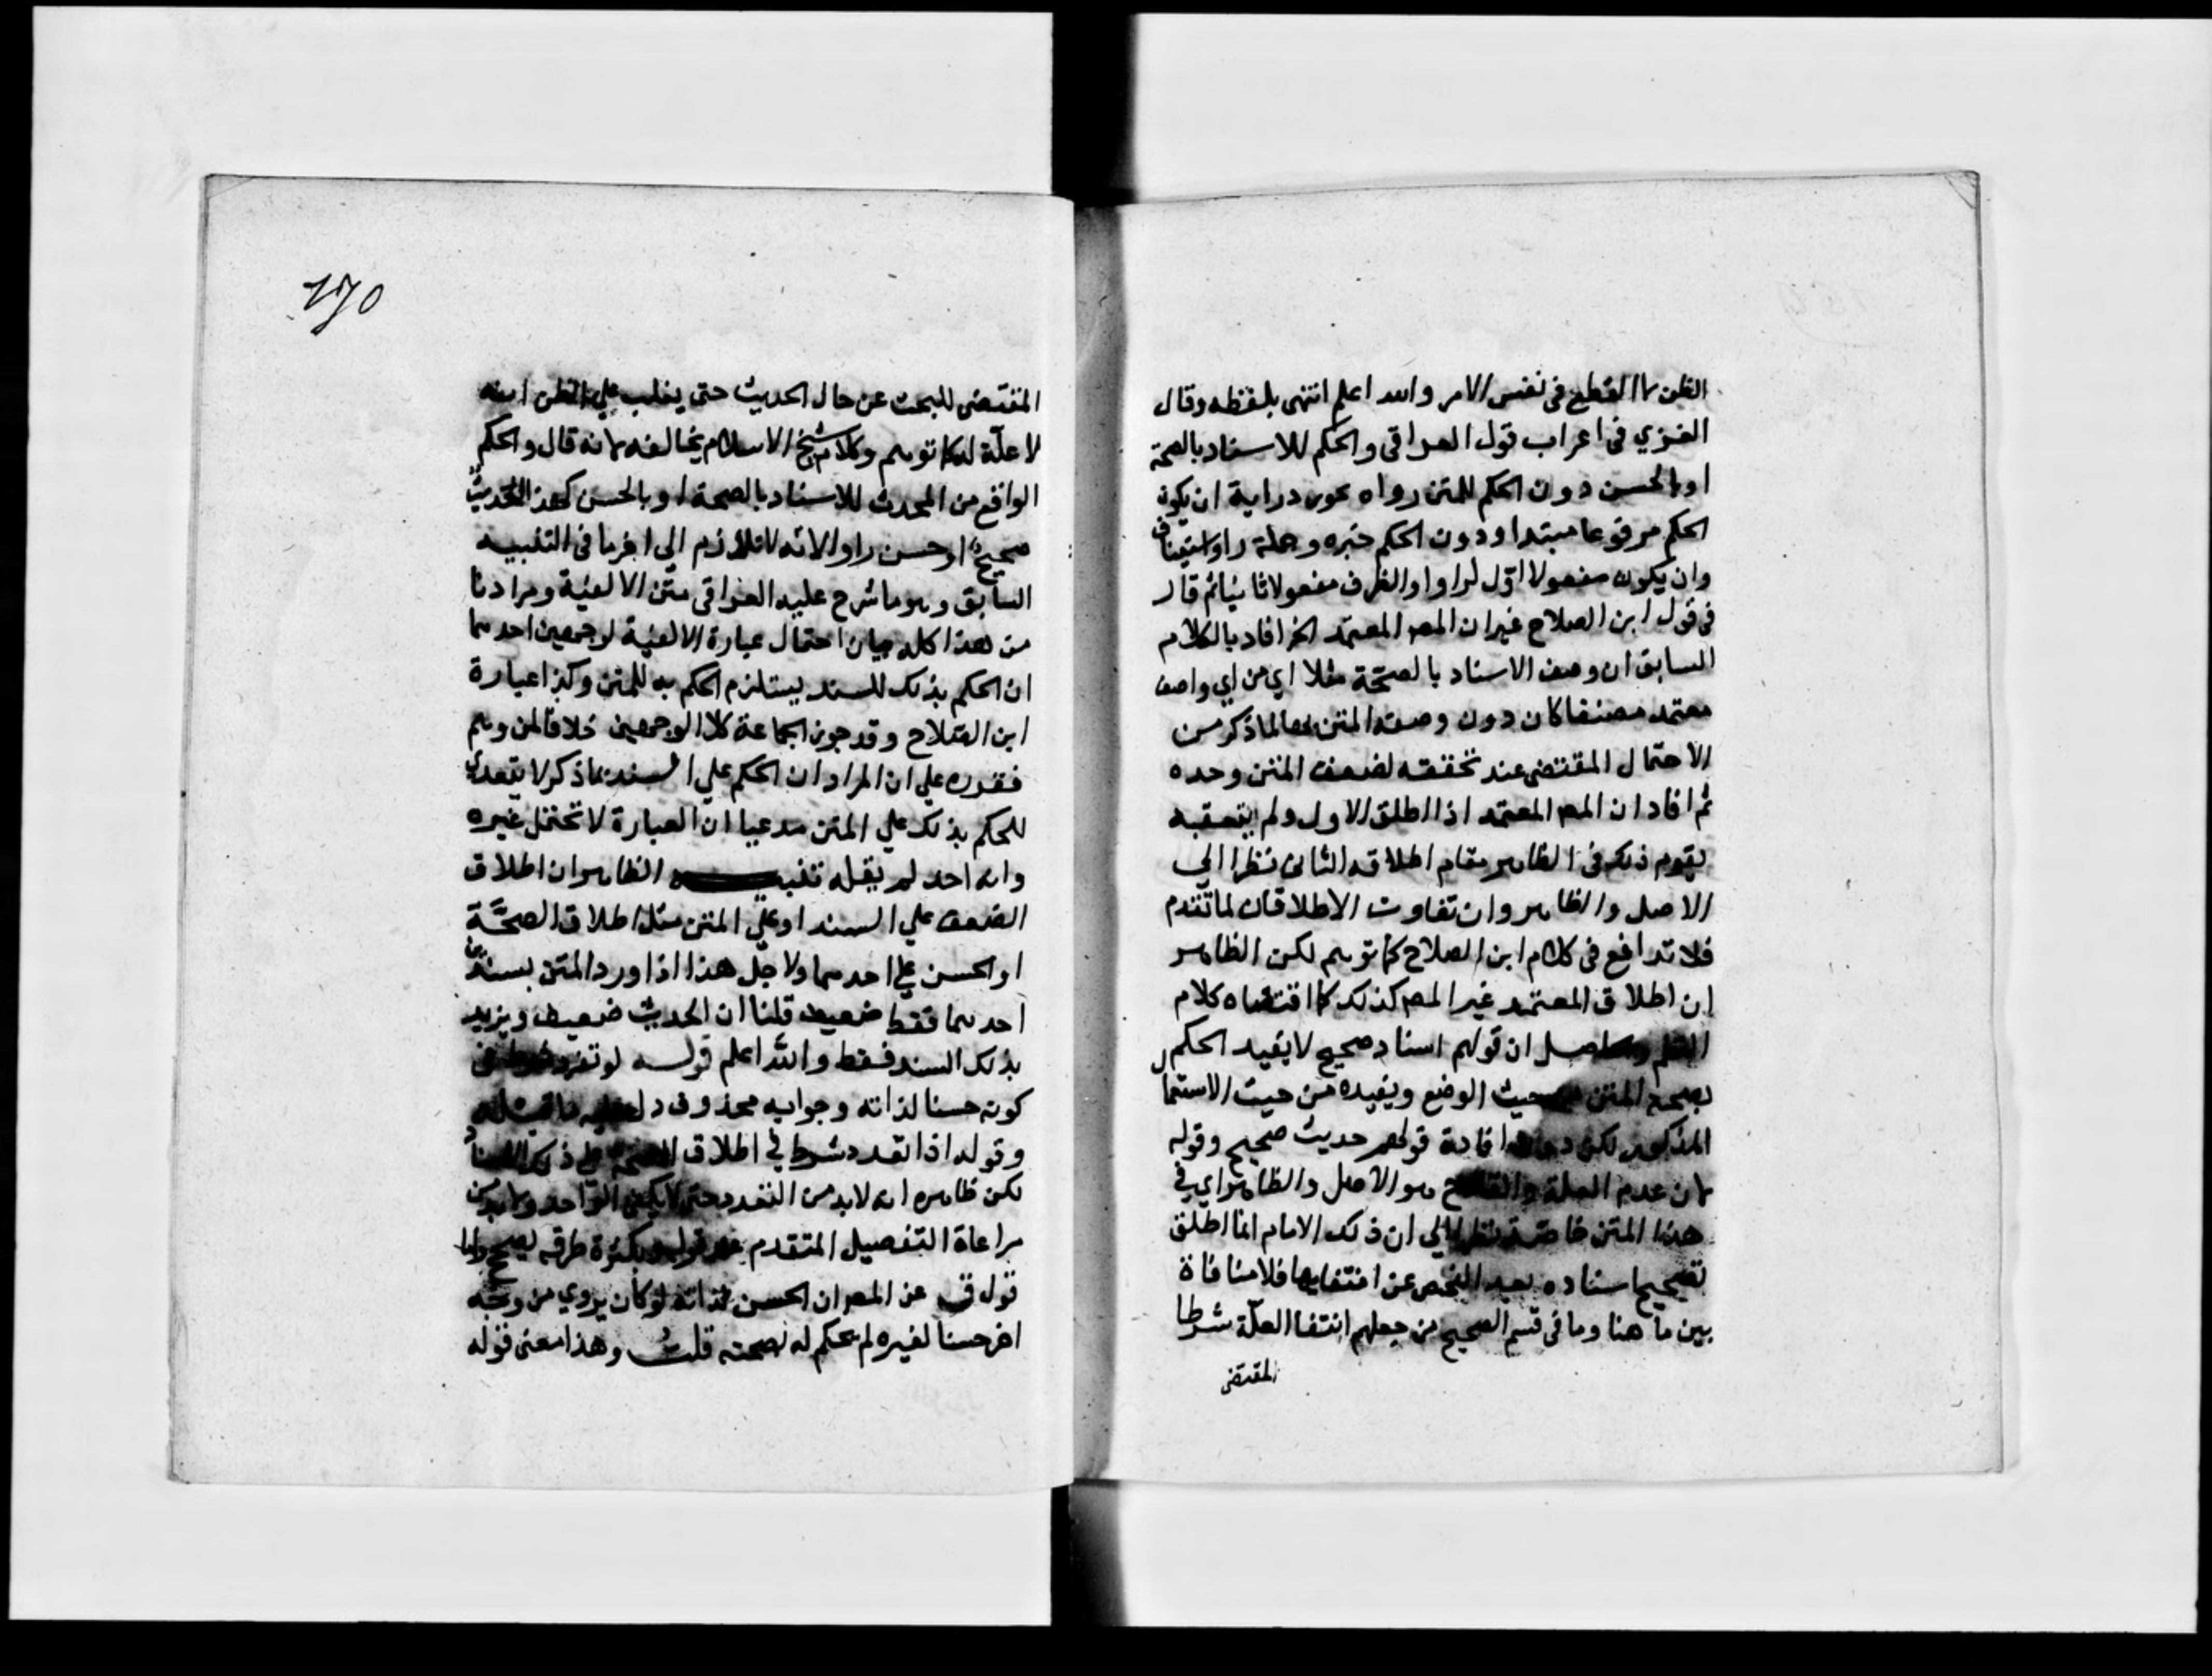 الظن لا القطع في نفس الامر والله اعلم انتهى بلفظه وقال
الغزي في اعراب قول العراقي والحكم للاسناد بالصحة
او بالحسن دون الحكم للمتن رواه نحو دراية ان يكون
الحكم مرفوعا مبتدا ودون الحكم خبره وجملة راوا استينافا
وان يكون مفعولا اول لراوا والظرف مفعولا ثانيا ثم قال
في قول ابن الصلاح غيران المص المعتمد الخ افاد بالكلام
السابق ان وصف الاسناد بالصحة مثلا اي من اي واصف
معتمد مصنفا كان دون وصف المتن بها لما ذكر من
الاحتمال المقتضي عند تحققه لضعف المتن وحده
ثم افاد ان المص المعتمد اذا اطلق الاول ولم يتعقبه
يقوم ذلك في الظاهر مقام اطلاقه الثاني نظرا الي
الاصل والظاهر وان تفاوت الاطلاقان لما تقدم
فلا تدافع في كلام ابن الصلاح كما توهم لكن الظاهر
ان اطلاق المعتمد غير المص كذلك كما اقتضاه كلام
ان قولهم اسناد صحيح لا يفيد الحكم
بصحة المتن حيث الوضع ويفيده من حيث الاستعمال
المذكور لكن افادة قولهم حديث صحيح وقوله
لان عدم العلة والقادح هو الاصل والظاهر اي في
هذا المتن خاصة نظرا الي ان ذلك الامام انما اطلق
تصحيح اسناده بعيد الفحص عن انتفايها فلا منافاة
بين ما هنا وما في قسم الصحيح من جعلهم انتفا العلة شرطا
المقتضي
170
المقتضي للبحث عن حال الحديث حتى يغلب علي الظن انه
لا علة له كما توهم وكلام شيخ الاسلام يخالفه لانه قال والحكم
الواقع من المحدث للاسناد بالصحة او بالحسن كهذا الحديث
صحيح او حسن راوا لانه لا تلازم الى اخر ما في التنبيه
السابق وهو ما شرح عليه العراقي متن الالفية ومرادنا
من هذا كله بيان احتمال عبارة الالفية لوجهين احدهما
ان الحكم بذلك للسند يستلزم الحكم به للمتن وكذا عبارة
ابن الصلاح وقد جوز الجماعة كلا الوجهين خلافا لمن وهم
فقرره علي ان المراد ان الحكم علي السند بما ذكر لا يتعدى
للحكم بذلك علي المتن مدعيا ان العبارة لا تحتمل غيره
وانه احد لم يقله تنبيه الظاهر ان اطلاق
الضعف علي السند او علي المتن مثل اطلاق الصحة
او الحسن علي احدهما ولاجل هذا اذا ورد المتن بسندين
احدهما فقط ضعيف قلنا ان الحديث ضعيف ويزيد
بذلك السند فقط والله اعلم قوله لو تفرد
كونه حسنا لذاته وجوابه محذوف دل
وقوله اذا تعدد شرط في اطلاق الصحة علي ذلك
لكن ظاهره انه لابد من التعدد حتى لا يكفي الواحد ولابد من
مراعاة التفصيل المتقدم قوله وبكثرة طرقه يصحح
قوله ق عن المص ان الحسن لذاته لو كان يروي من وجه
اخر حسنا لغيره لم يحكم له بصحته قلت وهذا معنى قوله